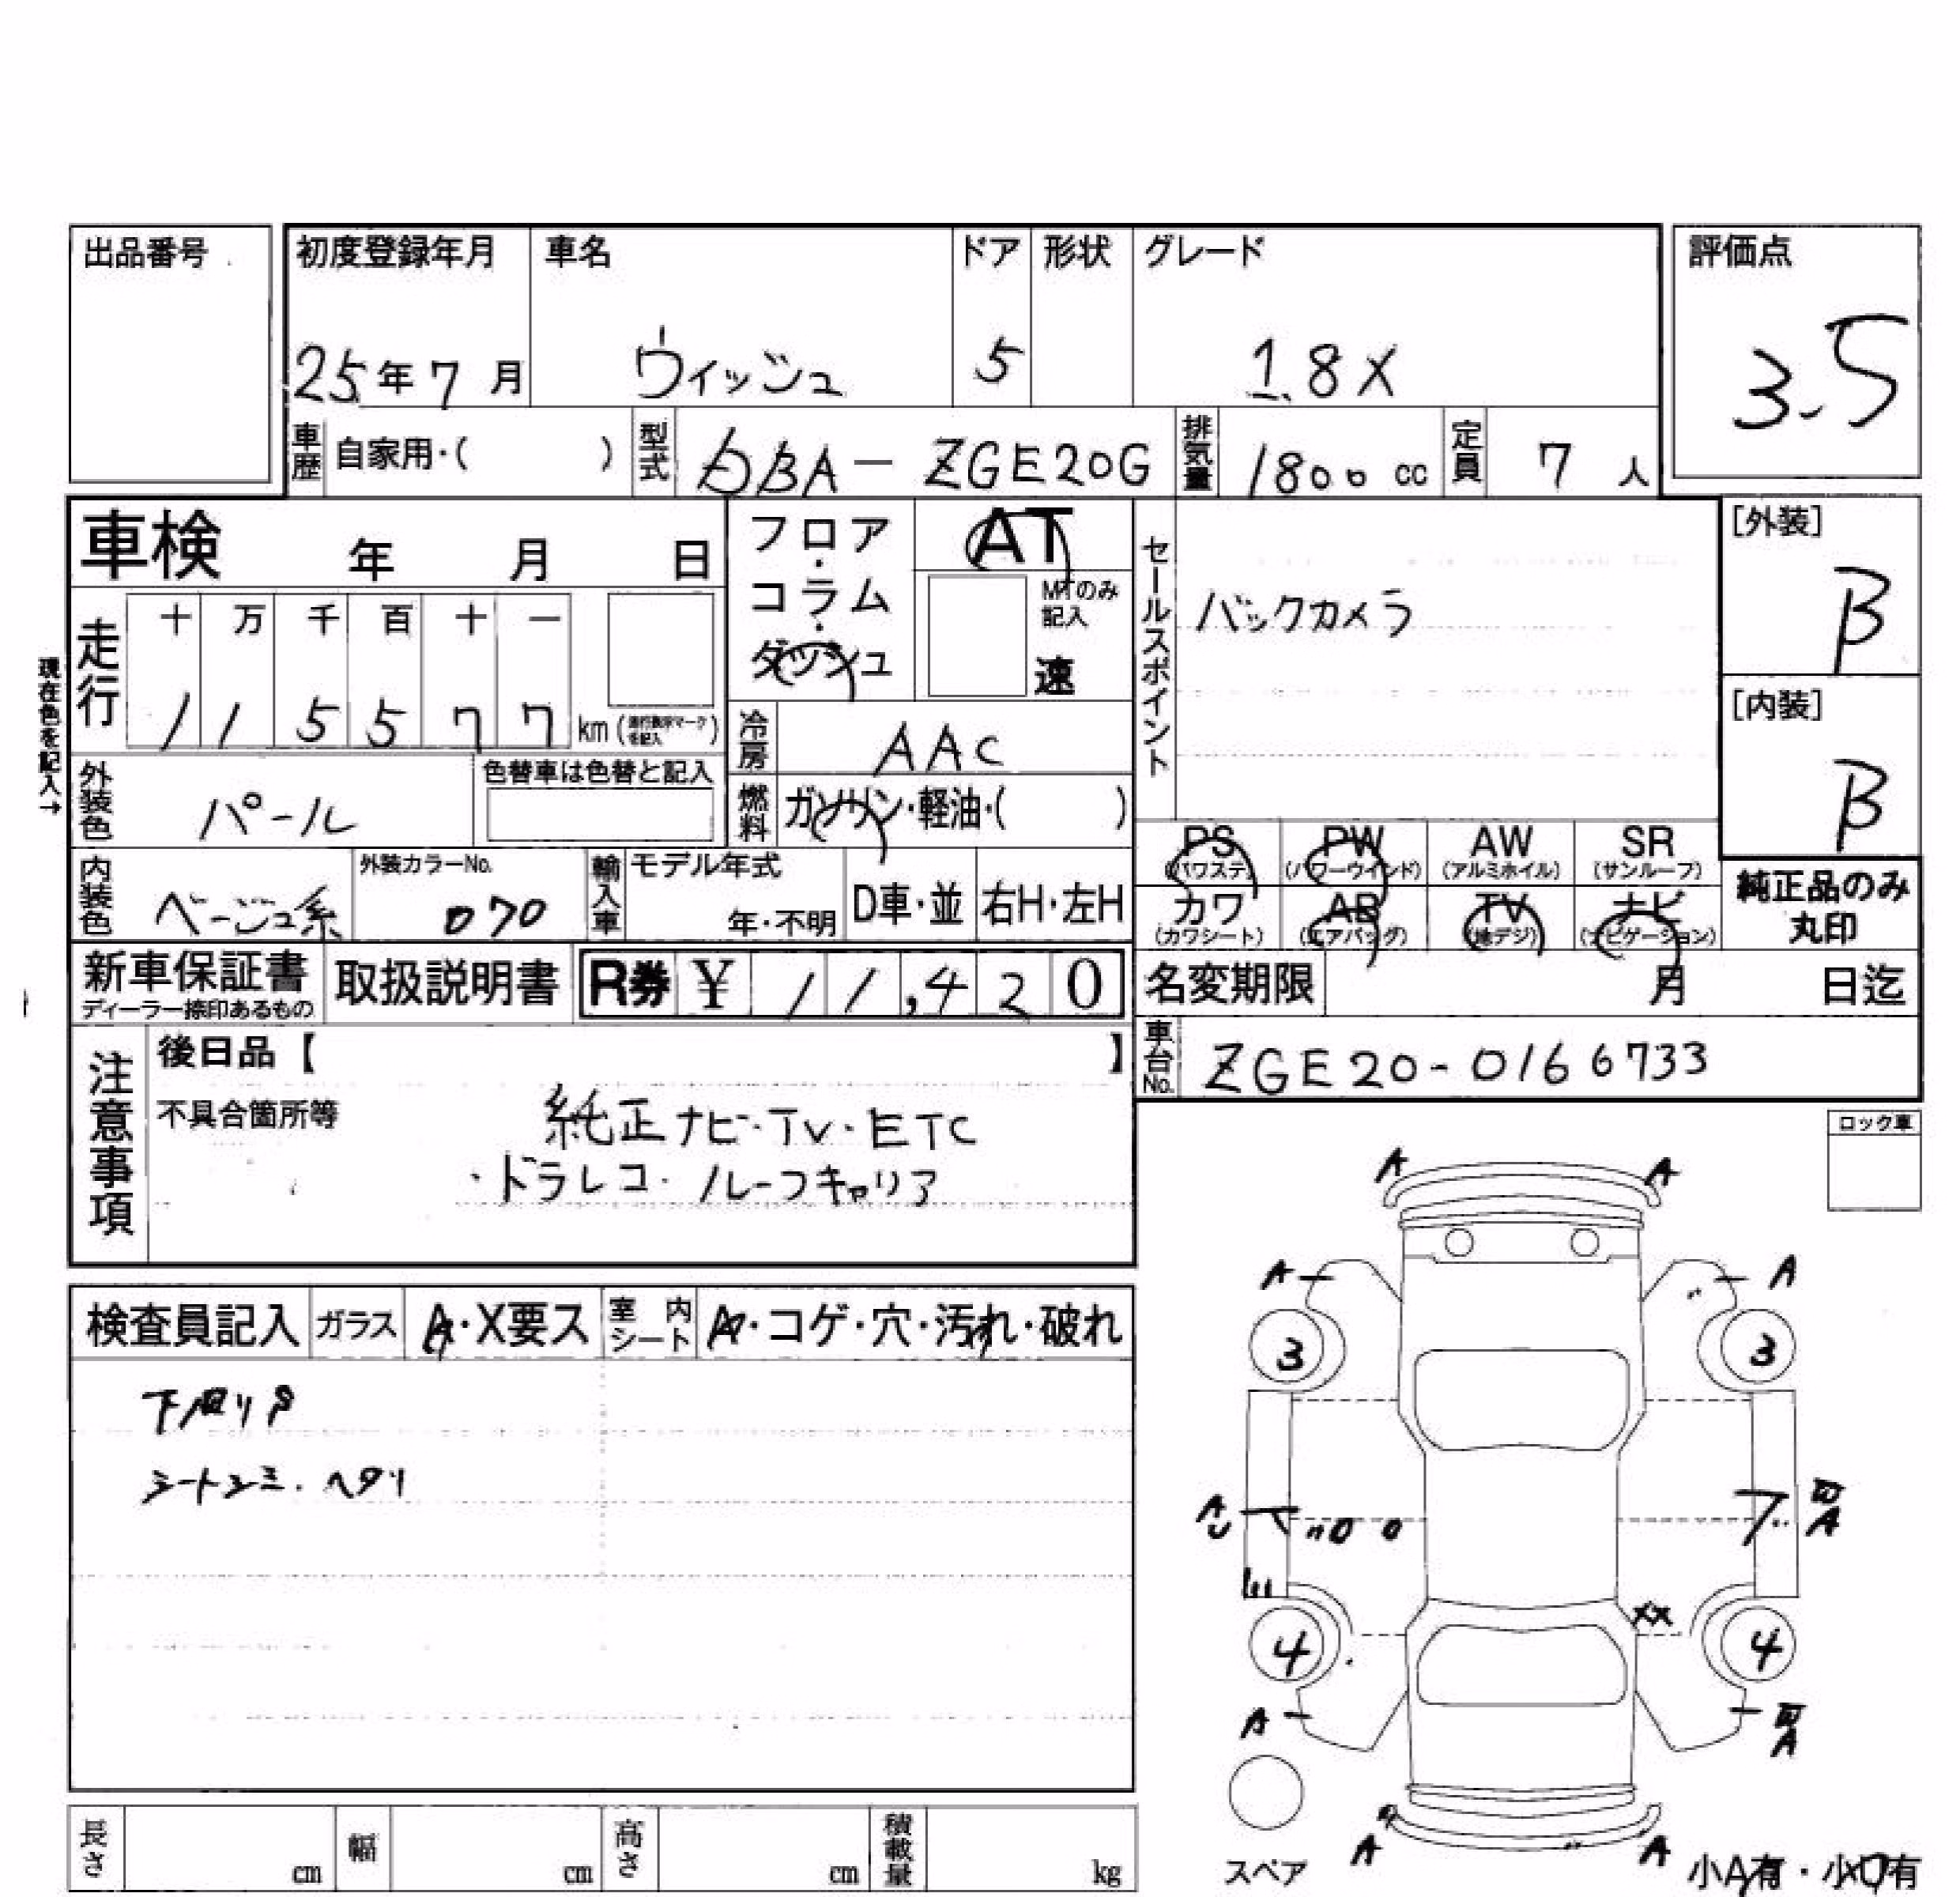 出品番号
初度登録年月 車名 ドア 形状 グレード 評価点
25年7月 ウィッシュ 5 1.8X 3.5
車歴 自家用・( ) 型式 DBA-ZGE20G 排気量 1800cc 定員 7人
車検 年 月 日 フロア・コラム・ダッシュ AT
MTのみ記入
速
セールスポイント
バックカメラ
[外装]
B
[内装]
B
現在色を記入→
走行 十 万 千 百 十 一
1 1 5 5 7 7 km
冷房 AAC
外装色 パール 色替車は色替と記入
燃料 ガソリン・軽油・( )
PS (パワステ) PW (パワーウインド) AW (アルミホイル) SR (サンルーフ)
カワ (カワシート) AB (エアバッグ) TV (地デジ) ナビ (ナビゲーション)
純正品のみ
丸印
内装色 ベージュ系 外装カラーNo. 070 輸入車 モデル年式 年・不明 D車・並 右H・左H
新車保証書 ディーラー捺印あるもの 取扱説明書 R券 ¥ 11,420
名変期限 月 日迄
車台No. ZGE20-0166733
注意事項
後日品【 】
不具合箇所等
純正ナビ・TV・ETC
・ドラレコ・ルーフキャリア
ロック車
検査員記入 ガラス A・X要ス 室内シート A・コゲ・穴・汚れ・破れ
シートシミ・ヘタリ
A A
A A
3 3
A
4 4
A A
A A
スペア
小A有・小U有
長さ cm 幅 cm 高さ cm 積載量 kg